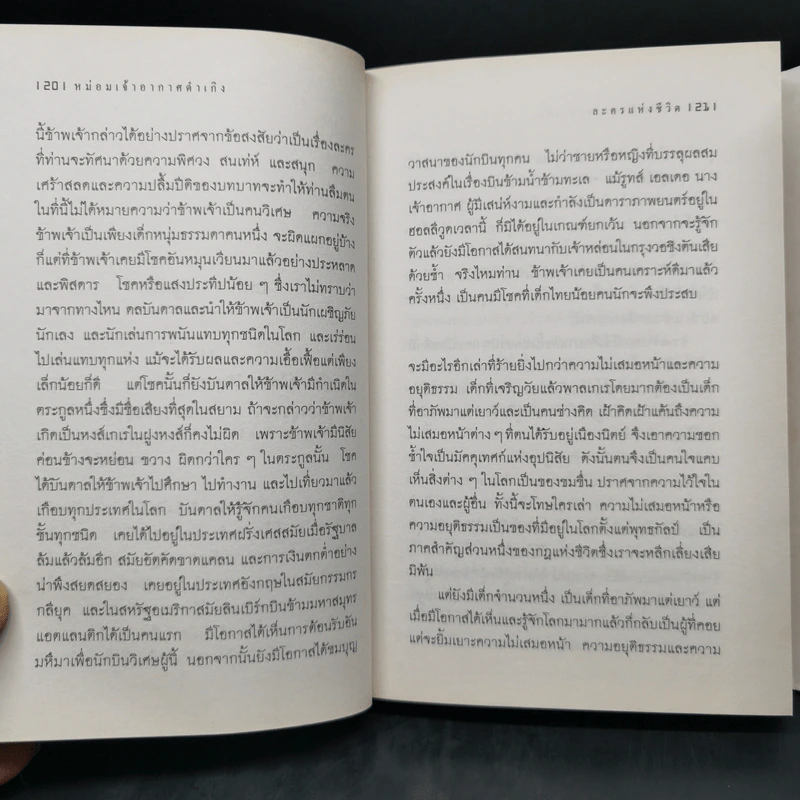 |20| หม่อมเจ้าอากาศดำเกิง
นี้ข้าพเจ้ากล่าวได้อย่างปราศจากข้อสงสัยว่าเป็นเรื่องละคร
ที่ท่านจะทัศนาด้วยความพิศวง สนเท่ห์ และสนุก ความ
เศร้าสลดและความปลื้มปีติของบทบาทจะทำให้ท่านลืมตน
ในที่นี้ไม่ได้หมายความว่าข้าพเจ้าเป็นคนวิเศษ ความจริง
ข้าพเจ้าเป็นเพียงเด็กหนุ่มธรรมดาคนหนึ่ง จะผิดแผกอยู่บ้าง
ก็แต่ที่ข้าพเจ้าเคยมีโชคอันหมุนเวียนมาแล้วอย่างประหลาด
และพิสดาร โชคหรือแสงประทีปน้อย ๆ ซึ่งเราไม่ทราบว่า
มาจากทางไหน ดลบันดาลและนำให้ข้าพเจ้าเป็นนักเผชิญภัย
นักเลง และนักเล่นการพนันแทบทุกชนิดในโลก และเร่ร่อน
ไปเล่นแทบทุกแห่ง แม้จะได้รับผลและความเอื้อเฟื้อแต่เพียง
เล็กน้อยก็ดี แต่โชคนั้นก็ยังบันดาลให้ข้าพเจ้ามีกำเนิดใน
ตระกูลหนึ่งซึ่งมีชื่อเสียงที่สุดในสยาม ถ้าจะกล่าวว่าข้าพเจ้า
เกิดเป็นหงส์เกเรในฝูงหงส์ก็คงไม่ผิด เพราะข้าพเจ้ามีนิสัย
ค่อนข้างจะหย่อน ขวาง ผิดกว่าใคร ๆ ในตระกูลนั้น โชค
ได้บันดาลให้ข้าพเจ้าไปศึกษา ไปทำงาน และไปเที่ยวมาแล้ว
เกือบทุกประเทศในโลก บันดาลให้รู้จักคนเกือบทุกชาติทุก
ชั้นทุกชนิด เคยได้ไปอยู่ในประเทศฝรั่งเศสสมัยเมื่อรัฐบาล
ล้มแล้วล้มอีก สมัยอัตคัดขาดแคลน และการเงินตกต่ำอย่าง
น่าพึงสยดสยอง เคยอยู่ในประเทศอังกฤษในสมัยกรรมกร
กลียุค และในสหรัฐอเมริกาสมัยลินเบิร์กบินข้ามมหาสมุทร
แอตแลนติกได้เป็นคนแรก มีโอกาสได้เห็นการต้อนรับอัน
มหึมาเพื่อนักบินวิเศษผู้นี้ นอกจากนั้นยังมีโอกาสได้ชมบุญ
ละครแห่งชีวิต |21|
วาสนาของนักบินทุกคน ไม่ว่าชายหรือหญิงที่บรรลุผลสม
ประสงค์ในเรื่องบินข้ามน้ำข้ามทะเล แม้รูทส์ เอลเดอ นาง
เจ้าอากาศ ผู้มีเสน่ห์งามและกำลังเป็นดาราภาพยนตร์อยู่ใน
ฮอลลีวูดเวลานี้ ก็มิได้อยู่ในเกณฑ์ยกเว้น นอกจากจะรู้จัก
ตัวแล้วยังมีโอกาสได้สนทนากับเจ้าหล่อนในกรุงวอชิงตันเสีย
ด้วยซ้ำ จริงไหมท่าน ข้าพเจ้าเคยเป็นคนเคราะห์ดีมาแล้ว
ครั้งหนึ่ง เป็นคนมีโชคที่เด็กไทยน้อยคนนักจะพึงประสบ
จะมีอะไรอีกเล่าที่ร้ายยิ่งไปกว่าความไม่เสมอหน้าและความ
อยุติธรรม เด็กที่เจริญวัยแล้วพาลเกเรโดยมากต้องเป็นเด็ก
ที่อาภัพมาแต่เยาว์และเป็นคนช่างคิด เฝ้าคิดเฝ้าแค้นถึงความ
ไม่เสมอหน้าต่าง ๆ ที่ตนได้รับอยู่เนืองนิตย์ จึงเอาความชอก
ช้ำใจเป็นมัคคุเทศก์แห่งอุปนิสัย ดังนั้นตนจึงเป็นคนไพล่แคบ
เห็นสิ่งต่าง ๆ ในโลกเป็นของขมขื่น ปราศจากความไว้ใจใน
ตนเองและผู้อื่น ทั้งนี้จะโทษใครเล่า ความไม่เสมอหน้าหรือ
ความอยุติธรรมเป็นของที่มีอยู่ในโลกตั้งแต่พุทธกัลป์ เป็น
ภาคสำคัญส่วนหนึ่งของกฎแห่งชีวิตซึ่งเราจะหลีกเลี่ยงเสีย
มิพ้น
แต่ยังมีเด็กจำนวนหนึ่ง เป็นเด็กที่อาภัพมาแต่เยาว์ แต่
เมื่อมีโอกาสได้เห็นและรู้จักโลกมามากแล้วก็กลับเป็นผู้ที่คอย
แต่จะยิ้มเยาะความไม่เสมอหน้า ความอยุติธรรมและความ